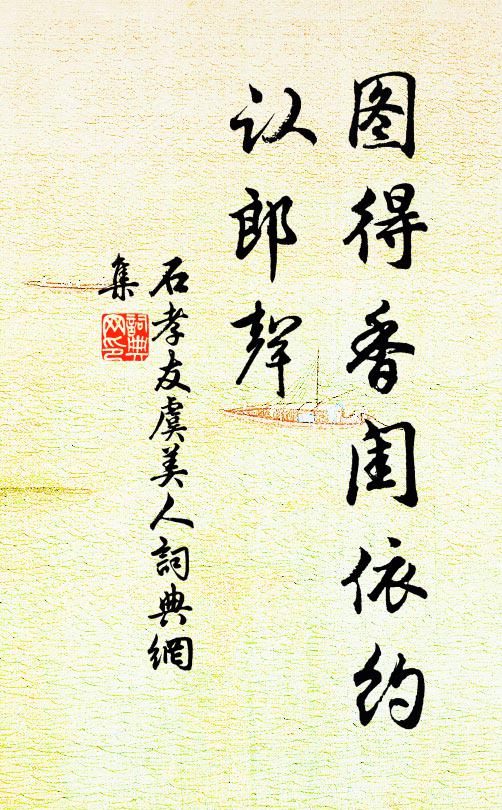 图得香闺依约
认郎聲
石孝友虞美人詞典網
集
詞典
网印